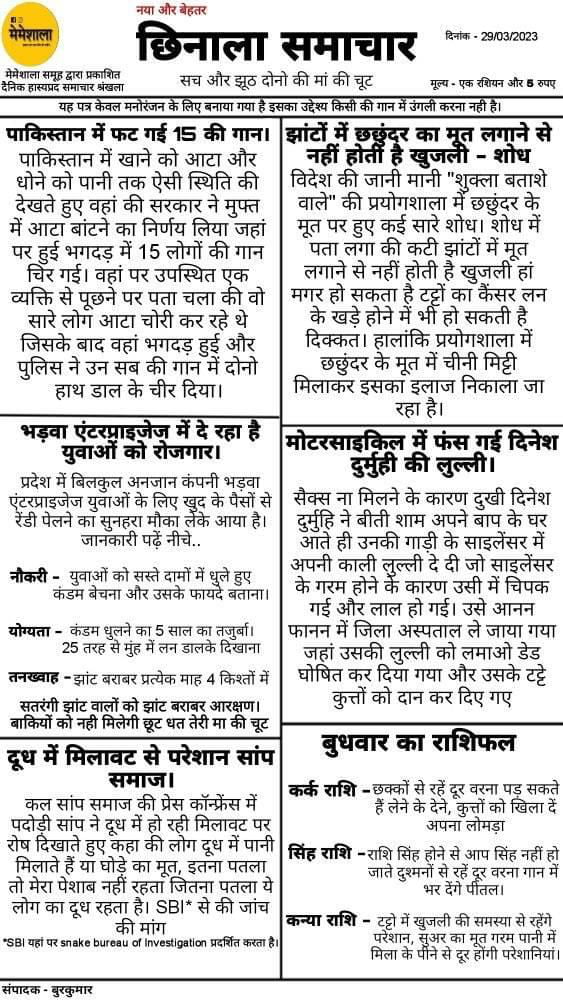 नया और बेहतर
मेमेशाला
छिनाला समाचार
दिनांक - 29/03/2023
मेमेशाला समूह द्वारा प्रकाशित
दैनिक हास्यप्रद समाचार श्रंखला
सच और झूठ दोनो की मां की चूट
मूल्य - एक रशियन और 5 रुपए
यह पत्र केवल मनोरंजन के लिए बनाया गया है इसका उद्देश्य किसी की गान में उंगली करना नही है।
पाकिस्तान में फट गई 15 की गान।
पाकिस्तान में खाने को आटा और
धोने को पानी तक ऐसी स्थिति की
देखते हुए वहां की सरकार ने मुफ्त
में आटा बांटने का निर्णय लिया जहां
पर हुई भगदड़ में 15 लोगों की गान
चिर गई। वहां पर उपस्थित एक
व्यक्ति से पूछने पर पता चला की वो
सारे लोग आटा चोरी कर रहे थे
जिसके बाद वहां भगदड़ हुई और
पुलिस ने उन सब की गान में दोनो
हाथ डाल के चीर दिया।
भड़वा एंटरप्राइजेज में दे रहा है
युवाओं को रोजगार।
प्रदेश में बिलकुल अनजान कंपनी भड़वा
एंटरप्राइजेज युवाओं के लिए खुद के पैसों से
रेंडी पेलने का सुनहरा मौका लेके आया है।
जानकारी पढ़ें नीचे..
नौकरी - युवाओं को सस्ते दामों में धुले हुए
कंडम बेचना और उसके फायदे बताना।
योग्यता - कंडम धुलने का 5 साल का तजुर्बा।
25 तरह से मुंह में लन डालके दिखाना
तनख्वाह - झांट बराबर प्रत्येक माह 4 किश्तों में
सतरंगी झांट वालों को झांट बराबर आरक्षण।
बाकियों को नही मिलेगी छूट धत तेरी मा की चूट
दूध में मिलावट से परेशान सांप
समाज।
कल सांप समाज की प्रेस कॉन्फ्रेंस में
पदोड़ी सांप ने दूध में हो रही मिलावट पर
रोष दिखाते हुए कहा की लोग दूध में पानी
मिलाते हैं या घोड़े का मूत, इतना पतला
तो मेरा पेशाब नहीं रहता जितना पतला ये
लोग का दूध रहता है। SBI* से की जांच
की मांग
*SBI यहां पर snake bureau of Investigation प्रदर्शित करता है।
झांटों में छछुंदर का मूत लगाने से
नहीं होती है खुजली - शोध
विदेश की जानी मानी "शुक्ला बताशे
वाले" की प्रयोगशाला में छछुंदर के
मूत पर हुए कई सारे शोध। शोध में
पता लगा की कटी झांटों में मूत
लगाने से नहीं होती है खुजली हां
मगर हो सकता है टट्टों का कैंसर लन
के खड़े होने में भी हो सकती है
दिक्कत। हालांकि प्रयोगशाला में
छछुंदर के मूत में चीनी मिट्टी
मिलाकर इसका इलाज निकाला जा
रहा है।
मोटरसाइकिल में फंस गई दिनेश
दुर्मुही की लुल्ली।
सैक्स ना मिलने के कारण दुखी दिनेश
दुर्मुहि ने बीती शाम अपने बाप के घर
आते ही उनकी गाड़ी के साइलेंसर में
अपनी काली लुल्ली दे दी जो साइलेंसर
के गरम होने के कारण उसी में चिपक
गई और लाल हो गई। उसे आनन
फानन में जिला अस्पताल ले जाया गया
जहां उसकी लुल्ली को लमाओ डेड
घोषित कर दिया गया और उसके टट्टे
कुत्तों को दान कर दिए गए
बुधवार का राशिफल
कर्क राशि - छक्कों से रहें दूर वरना पड़ सकते
हैं लेने के देने, कुत्तों को खिला दें
अपना लोमड़ा
सिंह राशि - राशि सिंह होने से आप सिंह नहीं हो
जाते दुश्मनों से रहें दूर वरना गान में
भर देंगे पीतल।
कन्या राशि - टट्टो में खुजली की समस्या से रहेंगे
परेशान, सुअर का मूत गरम पानी में
मिला के पीने से दूर होंगी परेशानियां।
संपादक - बुरकुमार